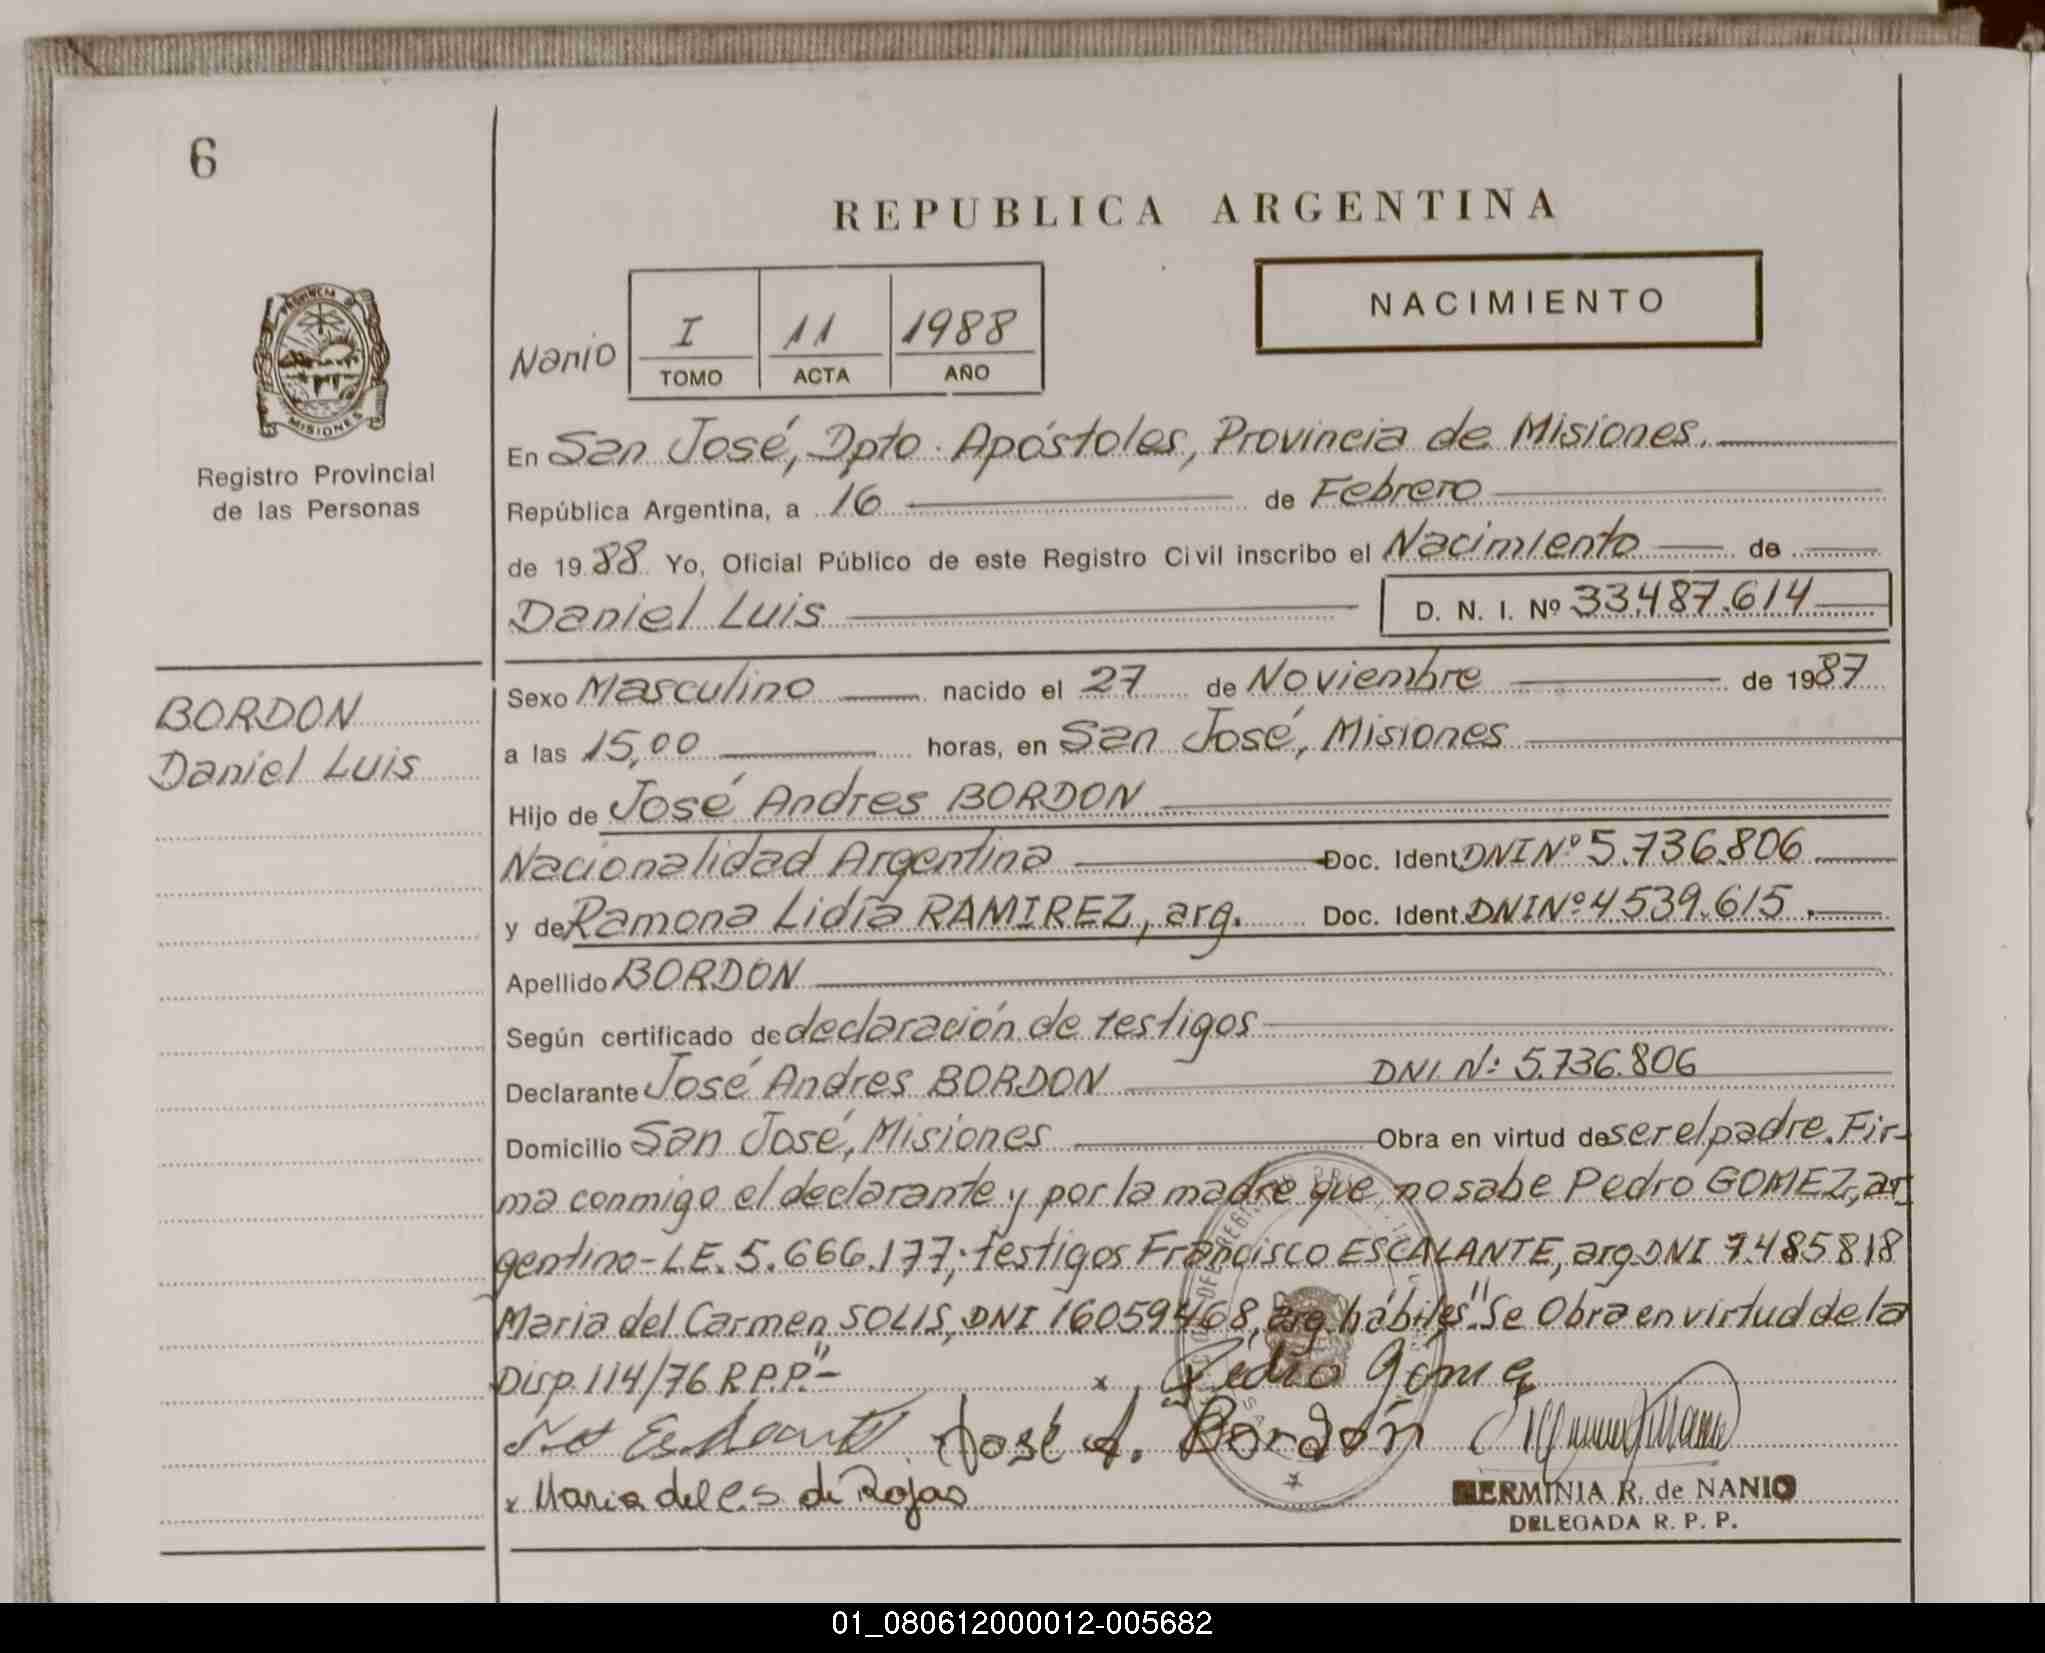 6
REPUBLICA ARGENTINA
NACIMIENTO
Nanio
I 11 1988
TOMO ACTA AÑO
PROVINCIA D
MISIONES
Registro Provincial
de las Personas
En San José, Dpto. Apóstoles, Provincia de Misiones.
República Argentina, a 16 de Febrero
de 1988 Yo, Oficial Público de este Registro Civil inscribo el Nacimiento de
Daniel Luis D. N. I. Nº 33.487.614
BORDON
Daniel Luis
Sexo Masculino nacido el 27 de Noviembre de 1987
a las 15,00 horas, en San José, Misiones
Hijo de José Andres BORDON
Nacionalidad Argentina Doc. Ident. DNI Nº 5.736.806
y de Ramona Lidia RAMIREZ, arg. Doc. Ident. DNI Nº 4539.615.
Apellido BORDON
Según certificado de declaración de testigos
Declarante José Andres BORDON DNI. N: 5.736.806
Domicilio San José, Misiones Obra en virtud de ser el padre. Fir-
ma conmigo el declarante y por la madre que no sabe Pedro GOMEZ, ar-
gentino-L.E. 5.666.177; testigos Francisco ESCALANTE, arg. DNI 7.485818
Maria del Carmen SOLIS, DNI 16059468, arg. hábiles "Se Obra en virtud de la
Disp. 114/76 R.P.P."-
x Pedro Gómez
Escalante José A. Bordón
x Maria del C. S de Rojas
HERMINIA R. de NANIO
DELEGADA R. P. P.
01_080612000012-005682